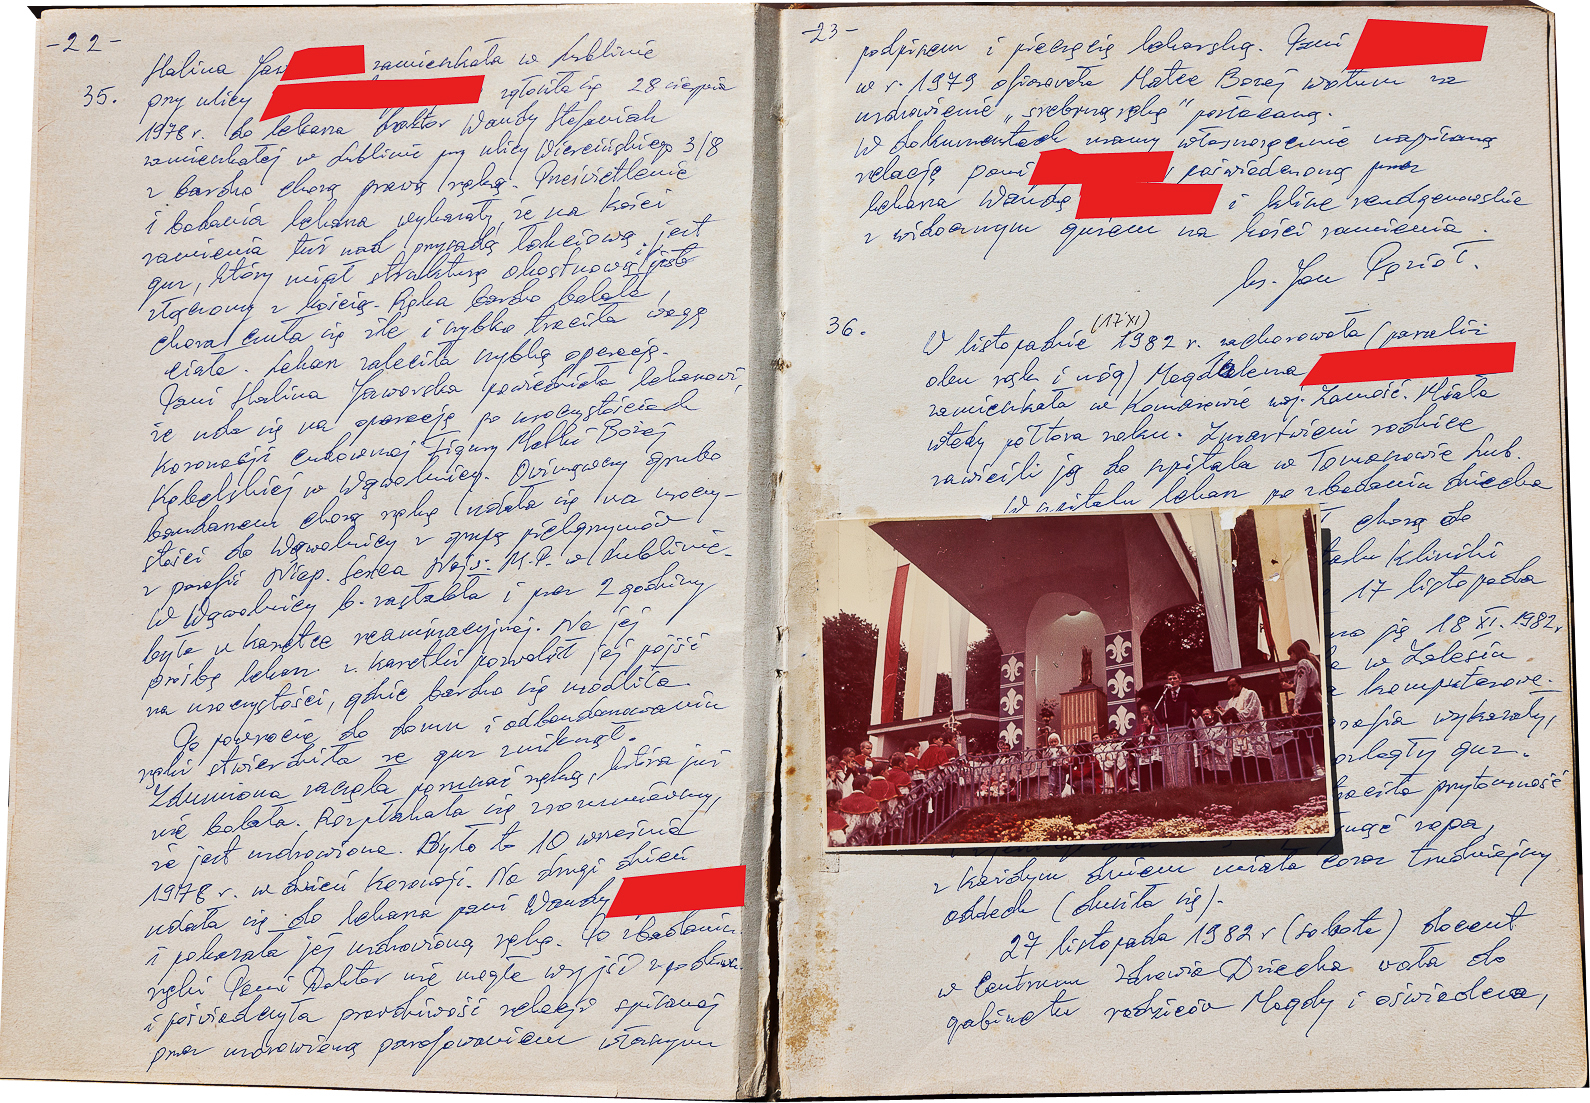 -22-
Halina Jaw zamieszkała w Lublinie
35. przy ulicy zgłosiła się 28 sierpnia
1978 r. do lekarza Doktor Wandy Stefaniak
zamieszkałej w Lublinie przy ulicy Wiercińskiego 3/8
z bardzo chorą prawą ręką. Prześwietlenie
i badania lekarza wykazały że na kości
ramienia tuż nad przysadą łokciową jest
guz, który miał strukturę okostnową i jest
złączony z kością. Ręka bardzo bolała,
chora czuła się źle i szybko traciła wagę
ciała. Lekarz zaleciła szybką operację.
Pani Halina Jaworska powiedziała lekarzowi,
że uda się na operację po uroczystościach
Koronacji cudownej Figury Matki Bożej
Kębelskiej w Wąwolnicy. Owinąwszy grubo
bandażem chorą rękę udała się na uroczy-
stości do Wąwolnicy z grupą pielgrzymów
z parafii Niep. Serca Najś. M.P. w Lublinie.
W Wąwolnicy b. zasłabła i przez 2 godziny
była w karetce reanimacyjnej. Na jej
prośbę lekarz z karetki pozwolił jej pójść
na uroczystości, gdzie bardzo się modliła.
Po powrocie do domu i odbandażowaniu
ręki stwierdziła że guz zniknął.
Zdumiona zaczęła poruszać ręką, która już
nie bolała. Rozpłakała się zrozumiawszy,
że jest uzdrowiona. Było to 10 września
1978 r. w dzień Koronacji. Na drugi dzień
udała się do lekarza pani Wandy
i pokazała jej uzdrowioną rękę. Po zbadaniu
ręki Pani Doktor nie mogła wyjść z podziwu
i poświadczyła prawdziwość relacji spisanej
przez uzdrowioną parafowaniem własnym
-23-
podpisem i pieczęcią lekarską. Pani
w r. 1979 ofiarowała Matce Bożej wotum za
uzdrowienie „srebrną rękę" pozłacaną.
W dokumentach mamy własnoręcznie napisaną
relację pani poświadczoną przez
lekarza Wandę i klisze rendgenowskie
z widocznym guzem na kości ramienia.
ks. Jan Pęzioł.
(17 XI)
36. W listopadzie 1982 r. zachorowała (paraliż
obu rąk i nóg) Magdalena
zamieszkała w Komarowie woj. Zamość. Miała
wtedy półtora roku. Zmartwieni rodzice
zawieźli ją do szpitala w Tomaszowie Lub.
W szpitalu lekarz po zbadaniu dziecka
chorą do
talu Kliniki
17 listopada
no ją 18 XI. 1982 r
w Zalesiu
komputerowe.
rafia wykazały,
rozległy guz.
traciła przytomność
ropa,
z każdym dniem miała coraz trudniejszy
oddech (dusiła się).
27 listopada 1982 r (sobota) docent
w Centrum Zdrowia Dziecka woła do
gabinetu rodziców Magdy i oświadcza,